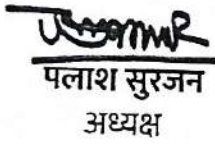 पलाश सुरजन
अध्यक्ष